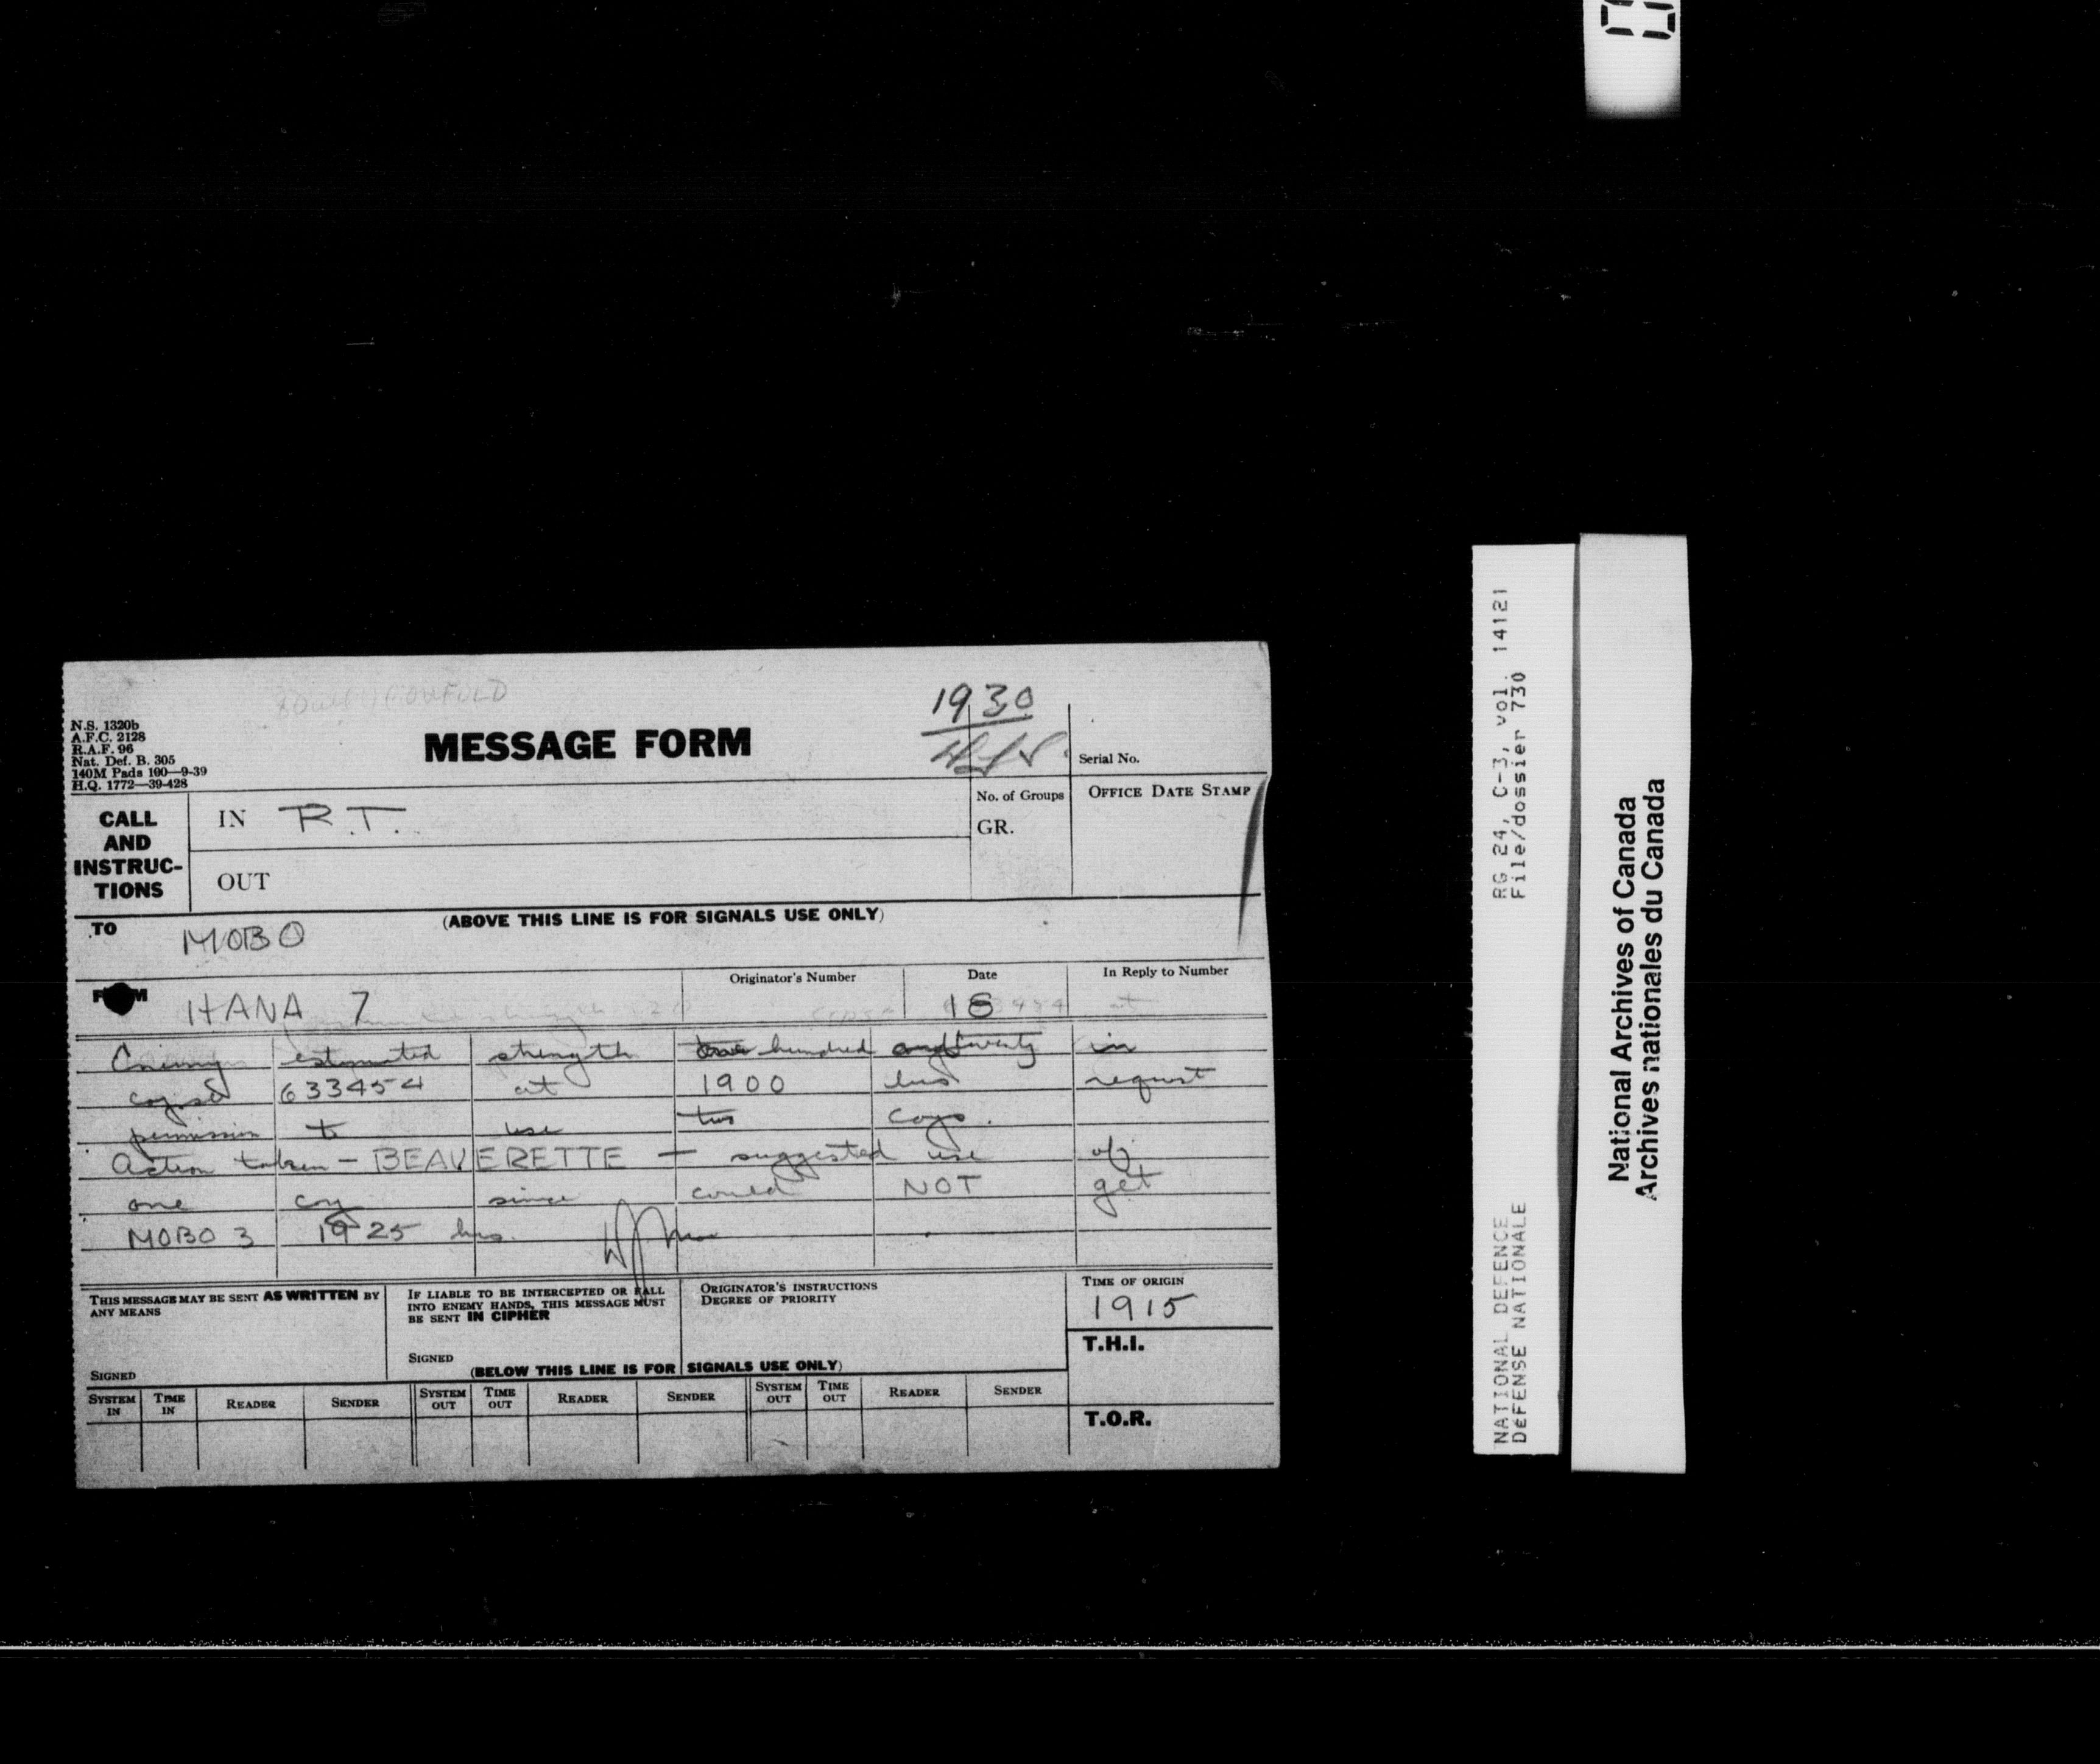 1930
N.S. 1320b
A.F.C. 2128
R.A.F. 96
Nat. Def. B. 305
140M Pads 100—9-39
H.Q. 1772—39-428
MESSAGE FORM
Serial No.
CALL AND INSTRUC-TIONS
IN R.T.
OUT
No. of Groups
GR.
OFFICE DATE STAMP
(ABOVE THIS LINE IS FOR SIGNALS USE ONLY)
TO MOBO
FROM HANA 7
Originator's Number
Date 18
In Reply to Number
Enemy estimated strength one hundred and twenty in
copse 633454 at 1900 hrs request
permission to use two coys.
Action taken - BEAVERETTE - suggested use of
one coy since could NOT get
MOBO 3 1925 hrs.
THIS MESSAGE MAY BE SENT AS WRITTEN BY
ANY MEANS
SIGNED
IF LIABLE TO BE INTERCEPTED OR FALL
INTO ENEMY HANDS, THIS MESSAGE MUST
BE SENT IN CIPHER
SIGNED
ORIGINATOR'S INSTRUCTIONS
DEGREE OF PRIORITY
TIME OF ORIGIN
1915
T.H.I.
(BELOW THIS LINE IS FOR SIGNALS USE ONLY)
SYSTEM IN TIME IN READER SENDER SYSTEM OUT TIME OUT READER SENDER SYSTEM OUT TIME OUT READER SENDER
T.O.R.
NATIONAL DEFENCE RG 24, C-3, vol. 14121
DéFENSE NATIONALE File/dossier 730
National Archives of Canada
Archives nationales du Canada